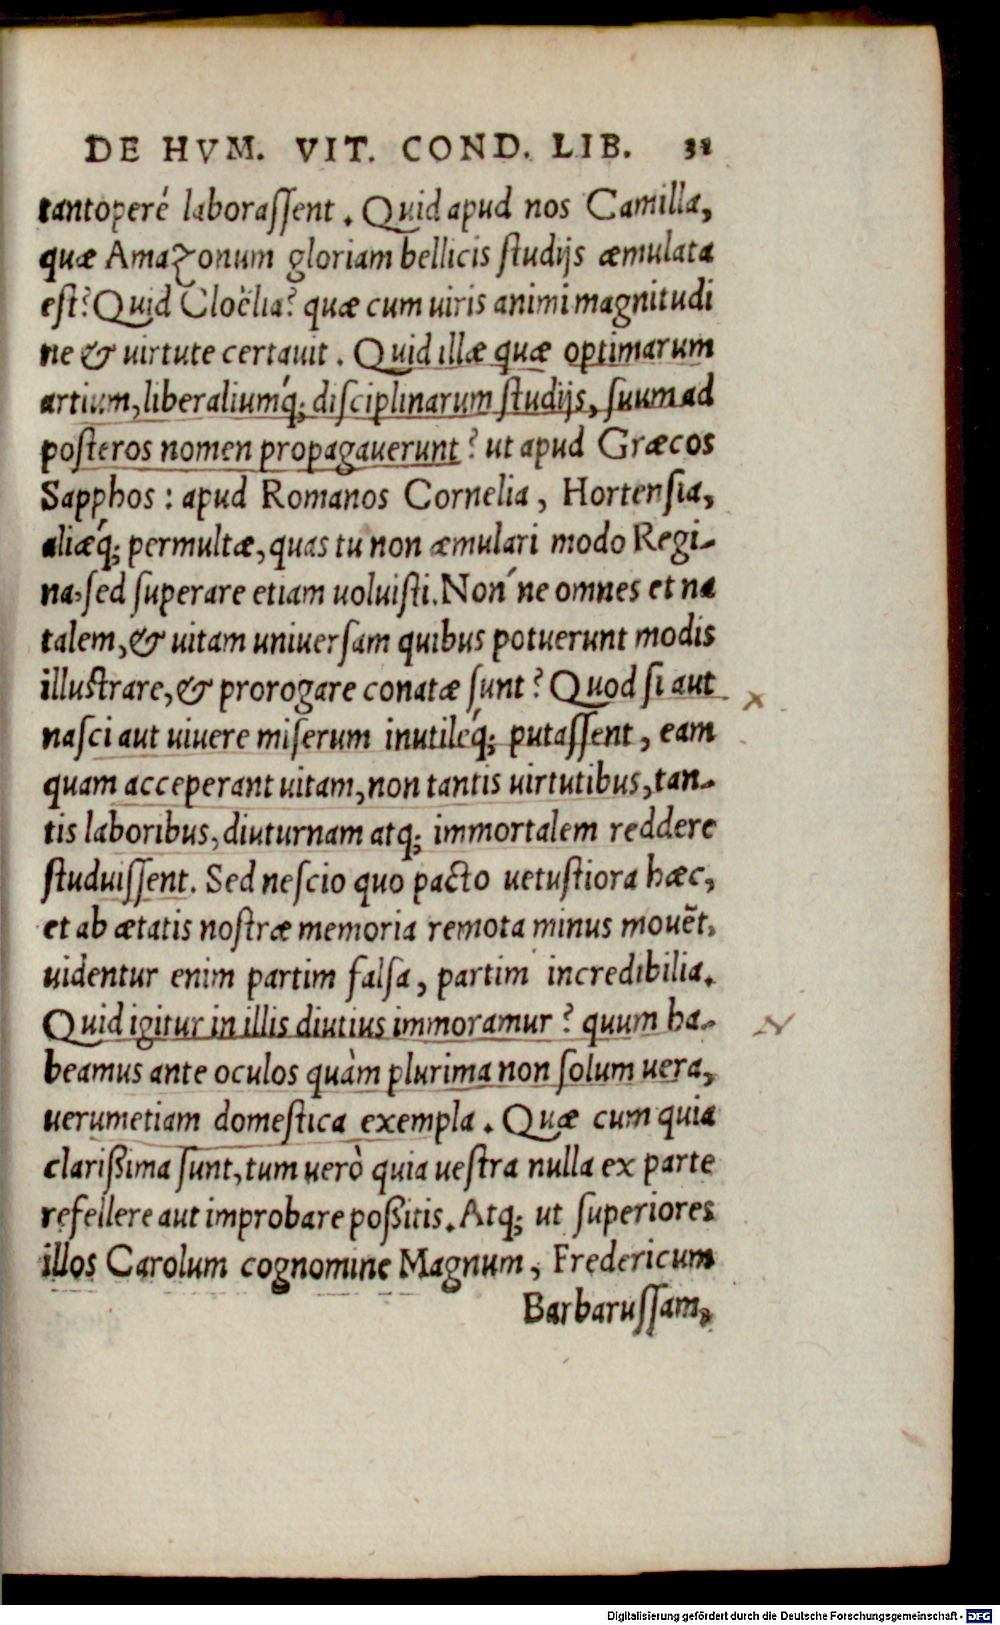 DE HVM. VIT. COND. LIB. 31
tantoperé laboraſſent. Quid apud nos Camilla,
quæ Amazonum gloriam bellicis ſtudijs æmulata
eſt? Quid Cloëlia? quæ cum uiris animi magnitudi
ne & uirtute certauit. Quid illæ quæ optimarum
artium, liberaliumq́; diſciplinarum ſtudijs, ſuum ad
poſteros nomen propagauerunt? ut apud Græcos
Sapphos: apud Romanos Cornelia, Hortenſia,
aliæq́; permultæ, quas tu non æmulari modo Regi-
na, ſed ſuperare etiam uoluiſti. Non´ne omnes et na
talem, & uitam uniuerſam quibus potuerunt modis
illuſtrare, & prorogare conatæ ſunt? Quod ſi aut
naſci aut uiuere miſerum inutileq́; putaſſent, eam
quam acceperant uitam, non tantis uirtutibus, tan-
tis laboribus, diuturnam atq; immortalem reddere
ſtuduiſſent. Sed neſcio quo pacto uetuſtiora hæc,
et ab ætatis noſtræ memoria remota minus mouẽt,
uidentur enim partim falſa, partim incredibilia.
Quid igitur in illis diutius immoramur? quum ha-
beamus ante oculos quàm plurima non ſolum uera,
uerumetiam domeſtica exempla. Quæ cum quia
clarißima ſunt, tum uerò quia ueſtra nulla ex parte
refellere aut improbare poßitis. Atq; ut ſuperiores
illos Carolum cognomine Magnum, Fredericum
Barbaruſſam,
Digitalisierung gefördert durch die Deutsche Forschungsgemeinschaft - DFG